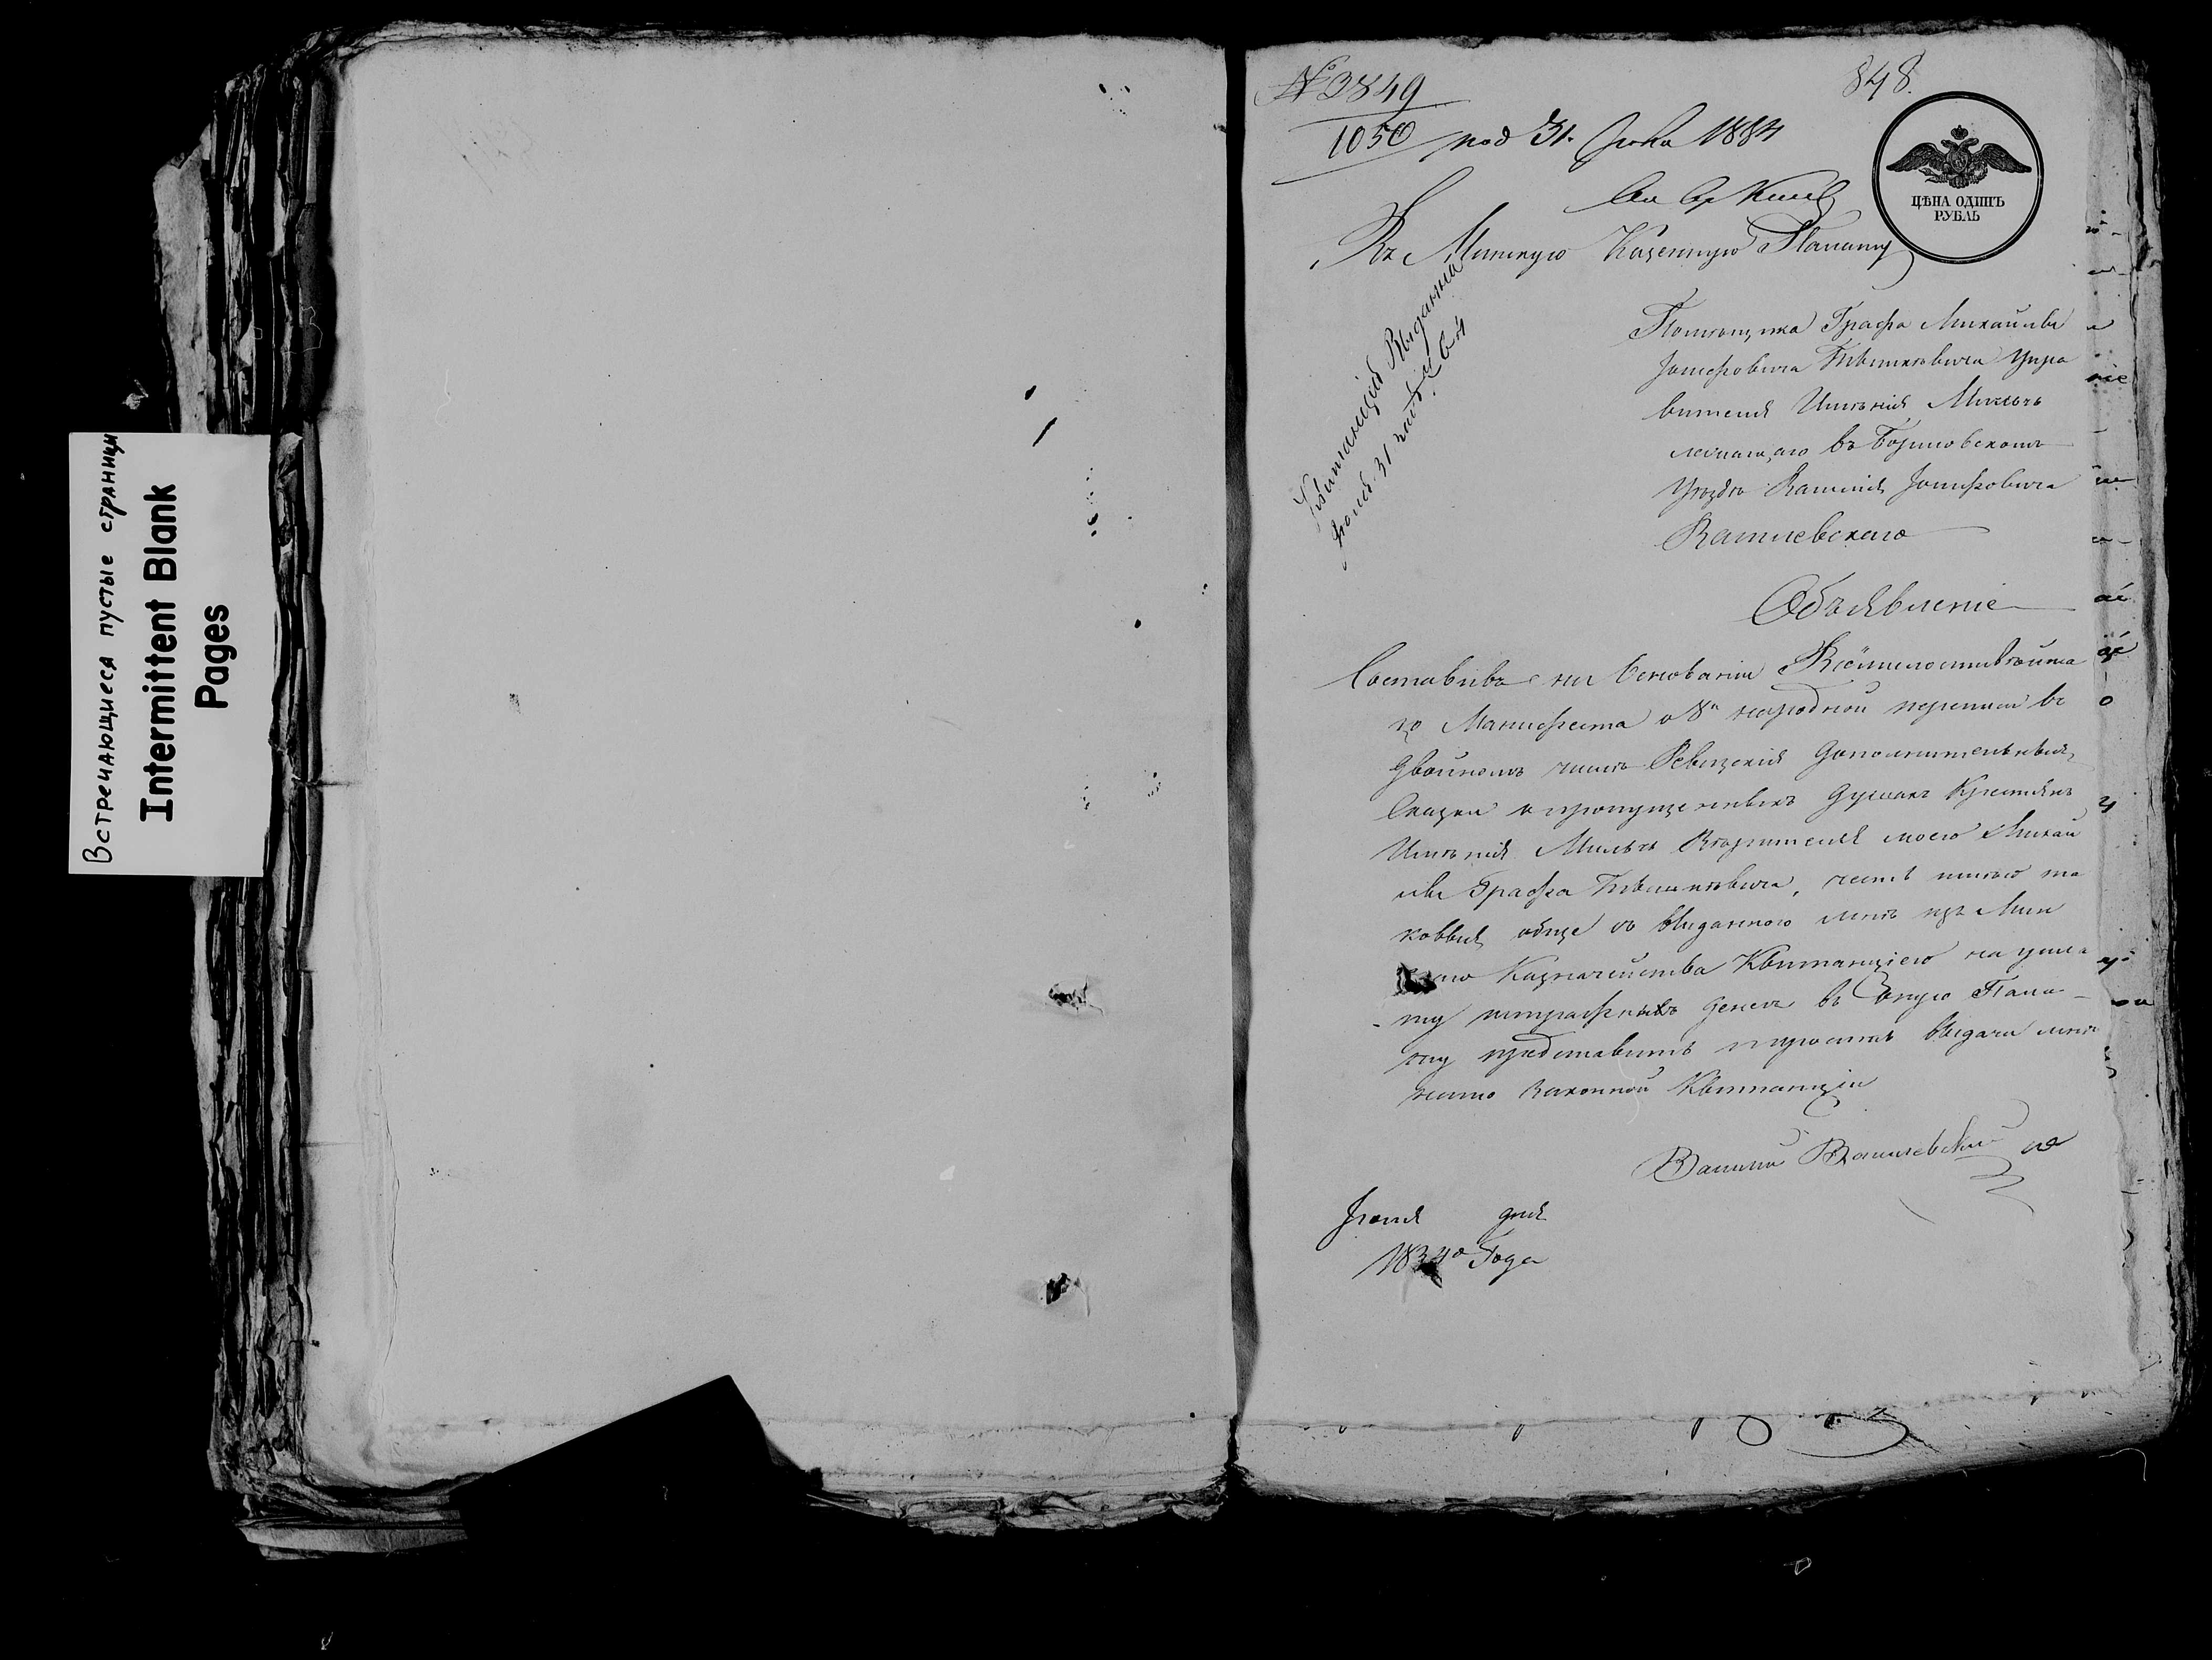 Встречающиеся пустые страницы
Intermittent Blank
Pages
848.
№ 3849
1050 под 31. Июля 1834
ЦѢНА ОДИНЪ
РУБЛЬ
Въ Минскую Казенную Палату
Квитанція Выданна
Іюля 31 № 64
Помѣщика Графа Михаила
Іосифовича Тышкевича Упра
вителя Имѣнія Мильчъ
лежащаго въ Борисовскомъ
Уѣздѣ Василія Іосифовича
Василевскаго
Объявленіе
Составивъ на Основаніи Всемилостивѣйша
го Манифеста о 8й народной переписи въ
двойномъ числѣ Ревизскія дополнительныя
Сказки о пропущенныхъ душахъ Крестьянъ
Имѣнія Мильчъ Вѣрителя моего Михаи
ла Графа Тышкевича, честь имѣю та
ковыя обще съ выданною мнѣ изъ Мин
Казначейства Квитанціею на упла
ту штрафныхъ денегъ въ Оную Пала
ту представить и просить выдачи мнѣ
законной Квитанціи
Василий Василевский
Іюля дня
1834го Года